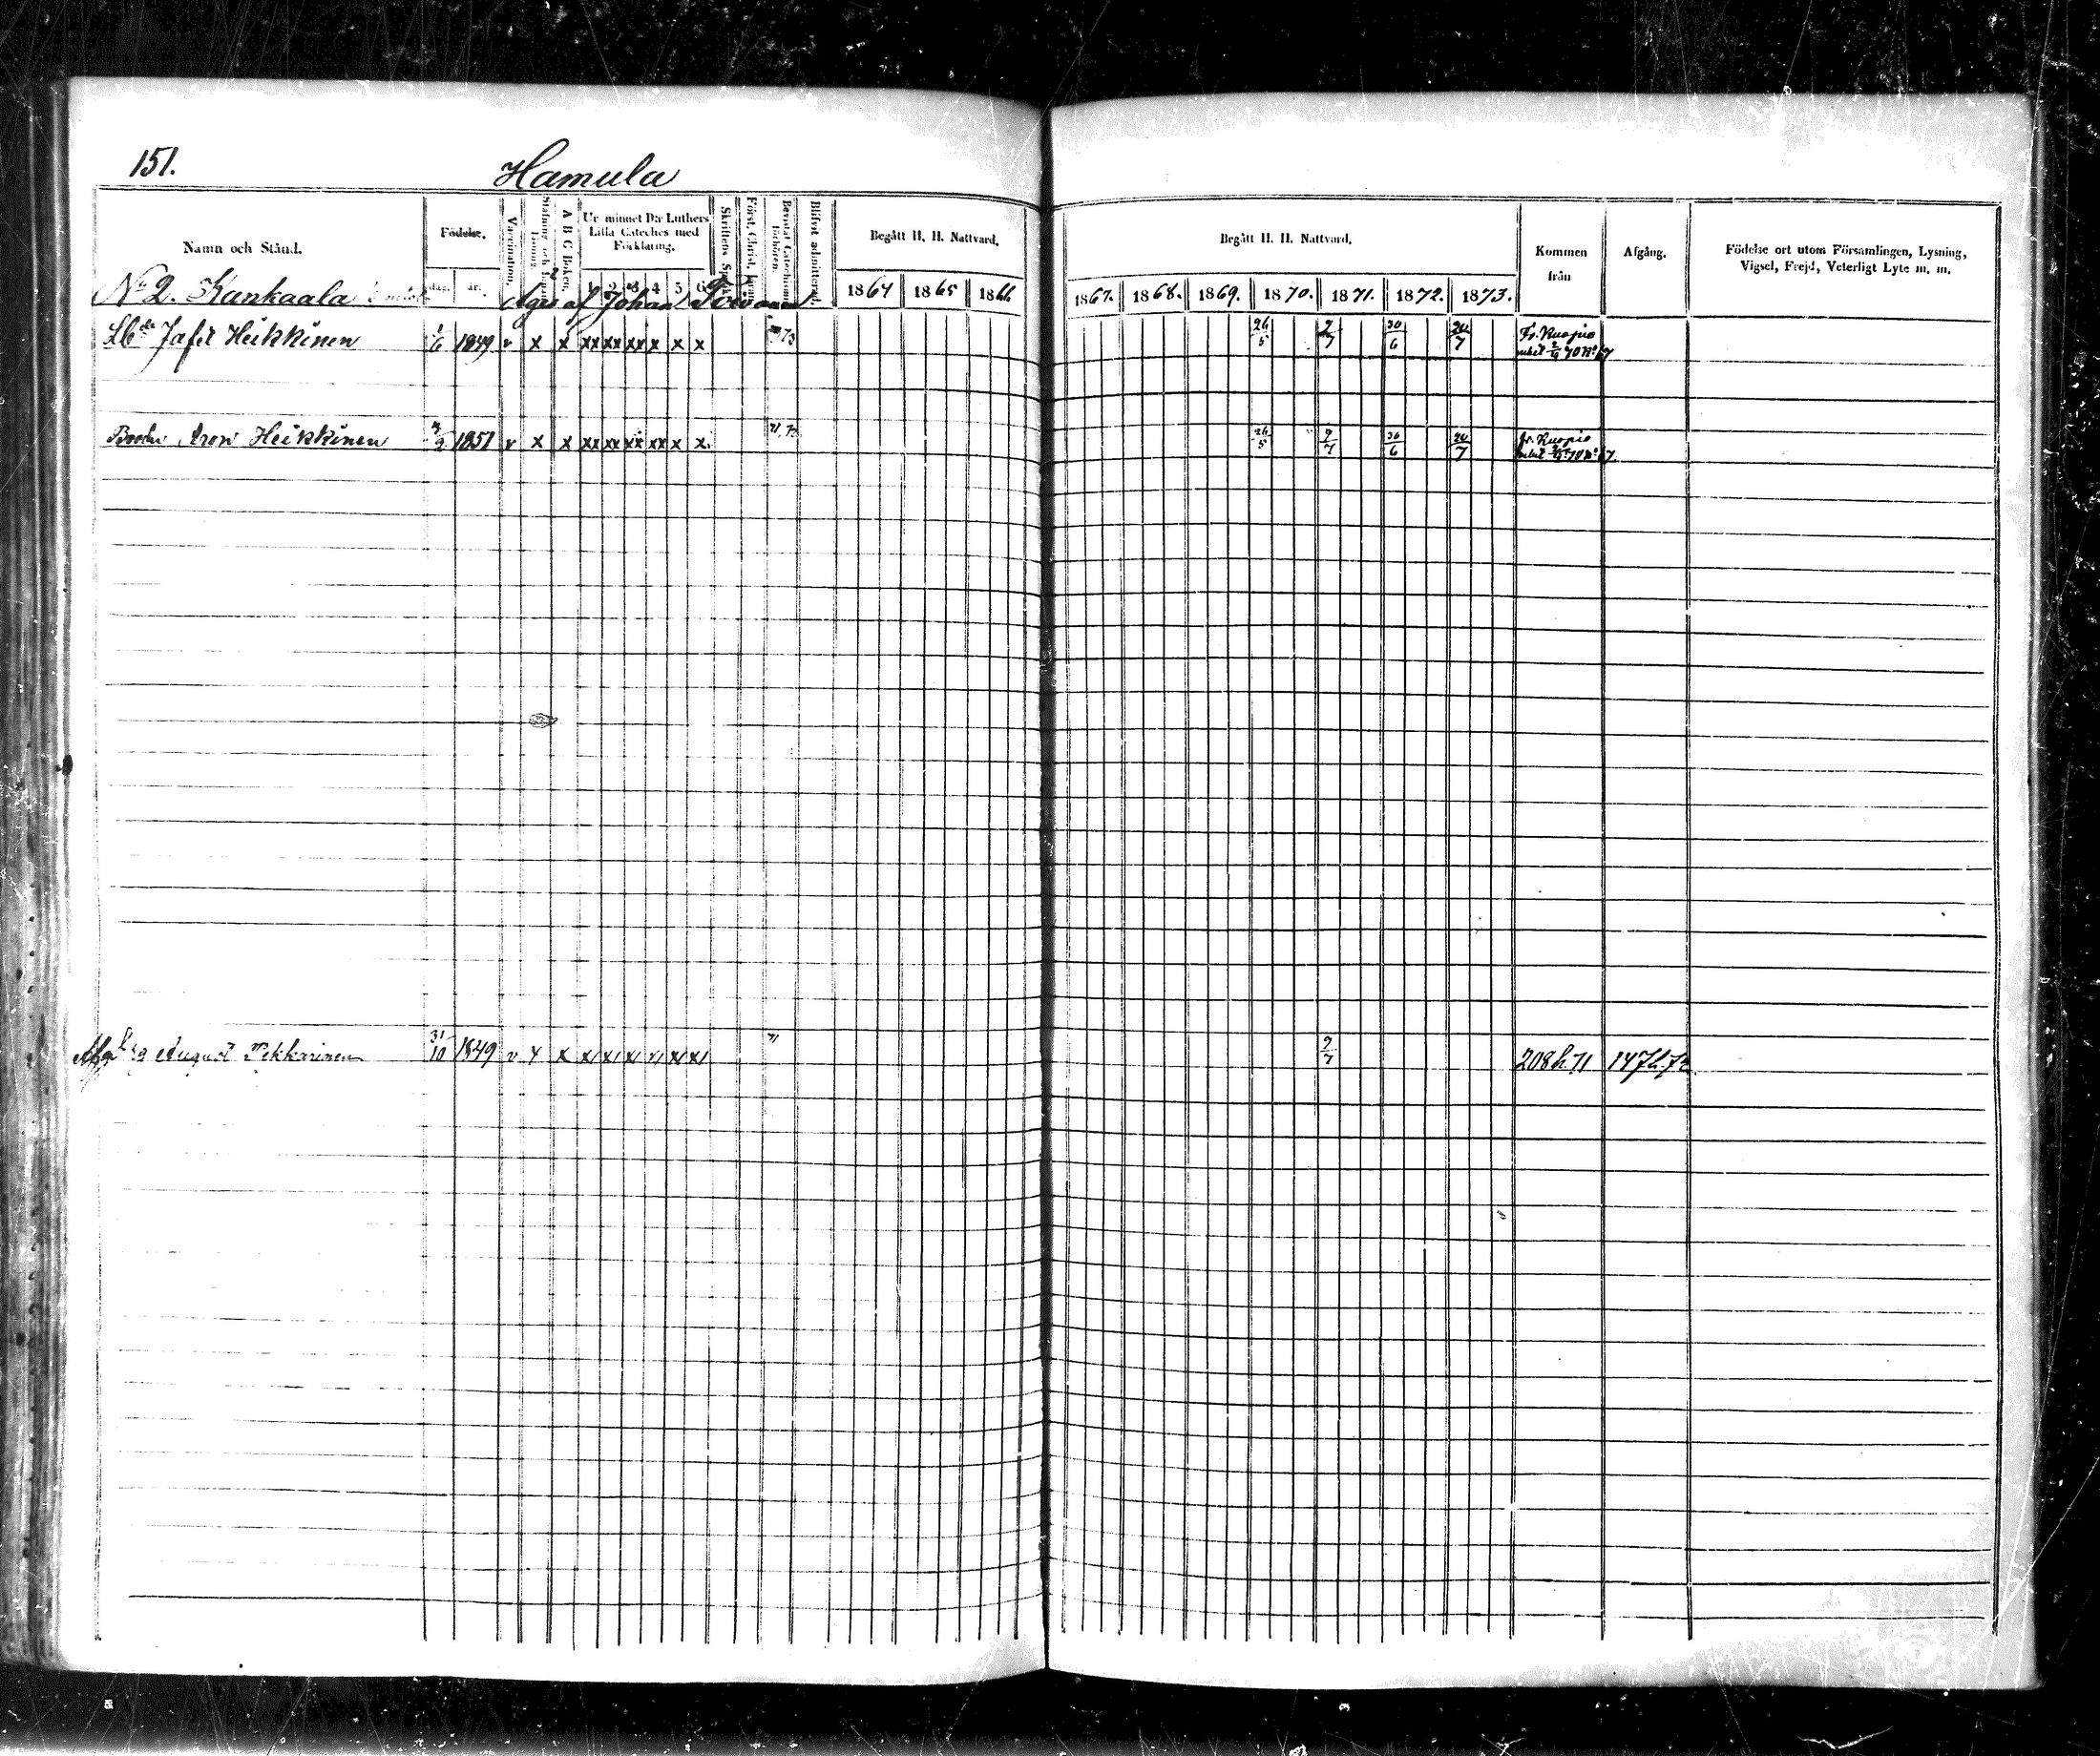 151.
Hamula
Namn och Stånd.
Födelse.
dag. år.
Vaccination.
Stafning och
A B C Boken.
Ur minnet D:r Luthers Lilla Cateches med Förklaring.
1 2 3 4 5 6
Skriftens
Först. Christ.
Bevistat Catechismi förhören.
Blifvit admitterad.
Begått H. H. Nattvard.
1864 1865 1866.
Begått H. H. Nattvard.
1867. 1868. 1869. 1870. 1871. 1872. 1873.
Kommen från
Afgång.
Födelse ort utom Församlingen, Lysning, Vigsel, Frejd, Veterligt Lyte m. m.
No 2. Kankaala
Äges af Johan
Jafet Heikkinen 1/6 1849 v x x xx xx xx x x x 73 26/5 2/7 30/6 20/7 Fr. Kuopio
70 No 67
Brodr Aron Heikkinen 1851 v x x xx xx xx xx x x 71, 73 26/5 2/7 30/6 20/7 fr. Kuopio
70 No 67
August Pekkarinen 31/10 1849 v x x x/ x/ x/ x/ x/ x/ 71 2/7 208 h. 71 147 h. 72